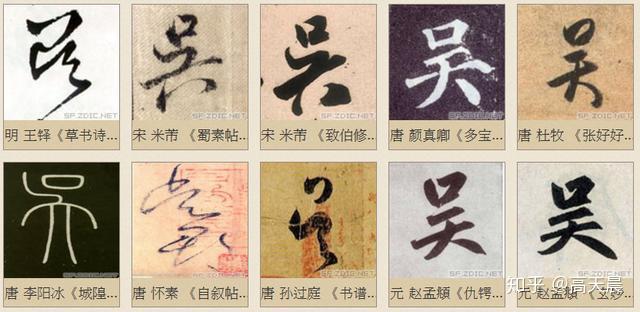 吴 吳 吳 吴 吴
SF.ZDIC.NET SF.ZDIC.NET SF.ZDIC.NET SF.ZDIC.NET SF.ZDIC.NET
明 王铎《草书诗... 宋 米芾 《蜀素帖... 宋 米芾 《致伯修... 唐 颜真卿《多宝... 唐 杜牧 《张好好...
吳 吴 吴 吴
SF.ZDIC.NET SF.ZDIC.NET SF.ZDIC.NET SF.ZDIC.NET SF.ZDIC.NET
唐 李阳冰《城隍... 唐 怀素 《自叙帖... 唐 孙过庭 《书谱... 元 赵孟頫《仇锷... 元 赵孟頫 《玄妙...
知乎 @高天晨